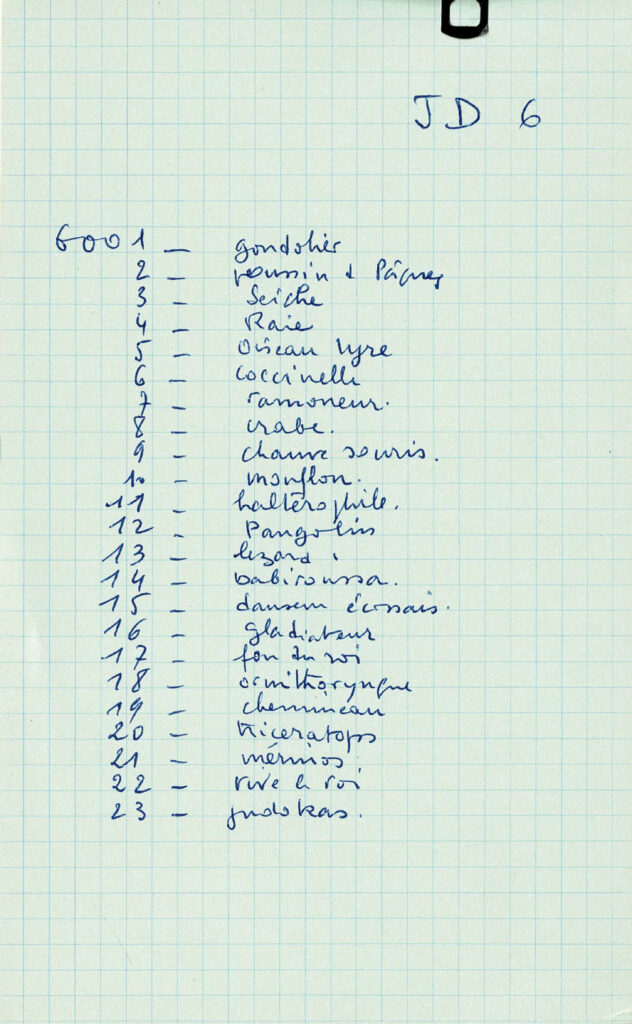 JD 6
6001 – gondolier
2 – poussin d Pâques
3 – Seiche
4 – Raie
5 – Oiseau lyre
6 – Coccinelle
7 – ramoneur.
8 – crabe.
9 – chauve souris.
10 – mouflon.
11 – haltérophile.
12 – Pangolin
13 – lezard.
14 – babiroussa.
15 – danseur écossais.
16 – gladiateur
17 – fou du roi
18 – ornithoryngue
19 – chemineau
20 – triceratops
21 – mérinos.
22 – vive le roi
23 – judokas.